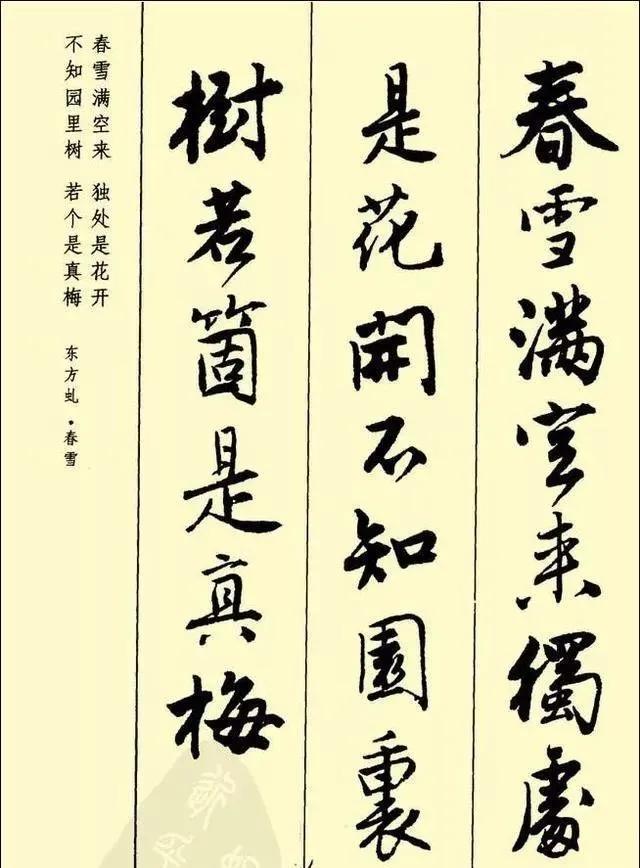 春雪滿空来獨處
是花開不知園裏
樹若箇是真梅
春雪满空来　独处是花开
不知园里树　若个是真梅
东方虬·春雪